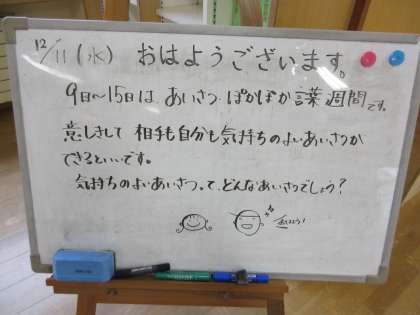 12/11(水) おはようございます。
9日~15日は、あいさつ・ぽかぽか言葉週間です。
意しきして 相手も自分も気持ちのよいあいさつが
できるといいです。
気持ちのよいあいさつって、どんなあいさつでしょう?
おはよう!